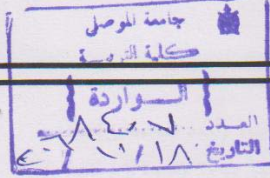 جامعة الموصل
كلية التربية
{ الواردة }
العدد
التاريخ ١١/١٨